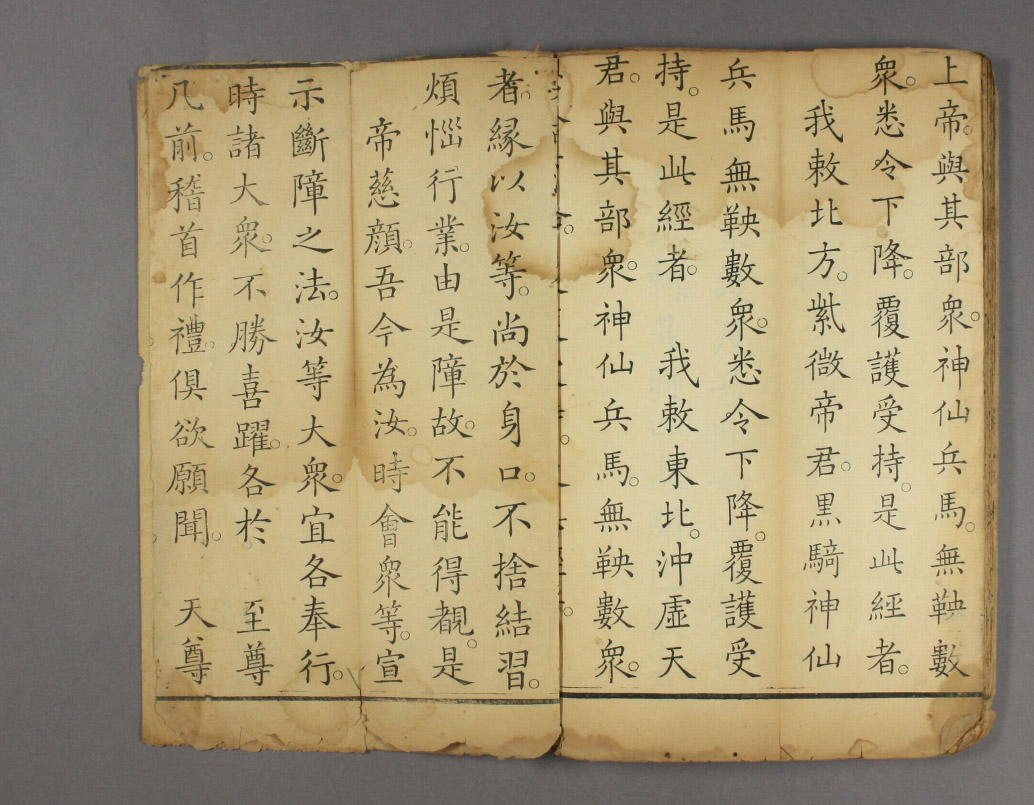 上帝。與其部衆。神仙兵馬。無鞅數
衆。悉令下降。覆護受持。是此經者。
我敕北方。紫微帝君。黒騎神仙
兵馬無鞅數衆。悉令下降。覆護受
持。是此經者。 我敕東北。沖虛天
君。與其部衆。神仙兵馬。無鞅數衆。
者。緣以汝等。尚於身口。不捨結習。
煩惱行業。由是障故。不能得覩。是
帝慈顔。吾今為汝。時會衆等。宣
示斷障之法。汝等大衆。宜各奉行。
時諸大衆。不勝喜躍。各於 至尊
几前。稽首作禮。俱欲願聞。 天尊